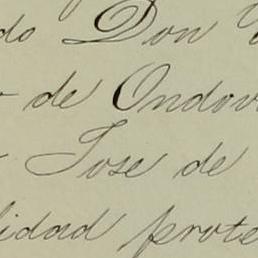 do Don
de Ondov
Jose de
lidad prote